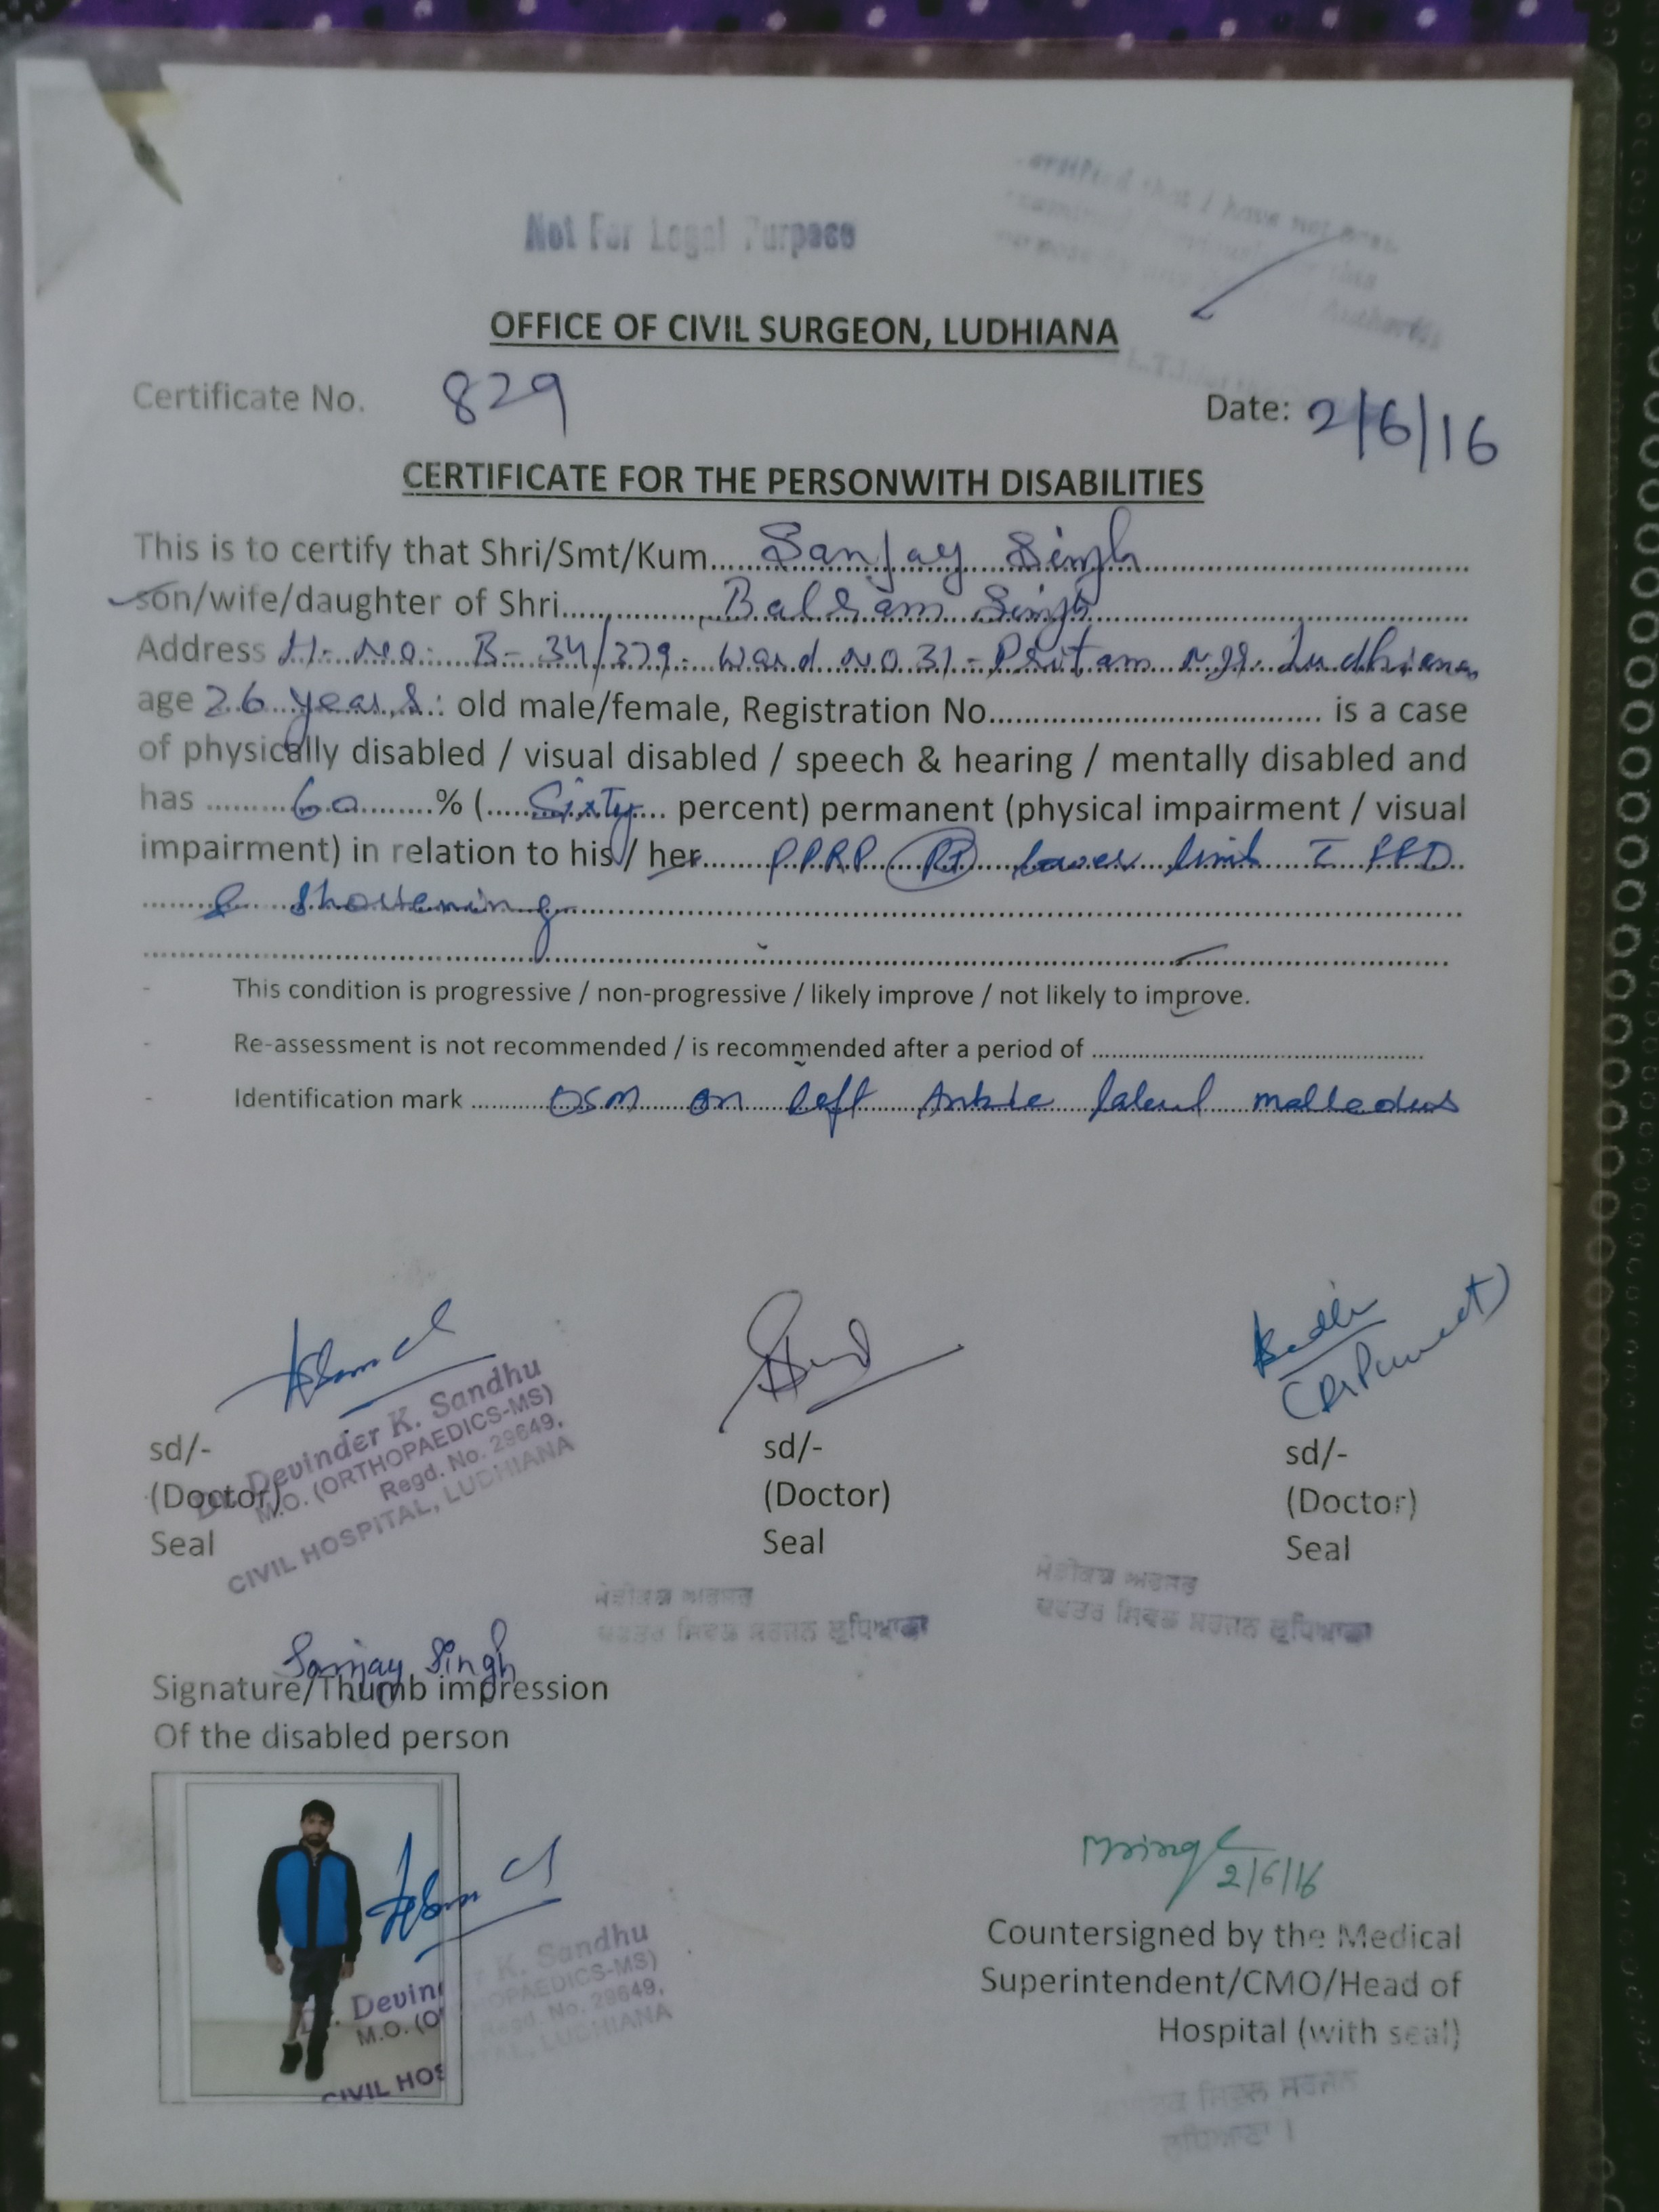 Not For Legal Purpose
OFFICE OF CIVIL SURGEON, LUDHIANA
Certificate No. 829 Date: 2/6/16
CERTIFICATE FOR THE PERSONWITH DISABILITIES
This is to certify that Shri/Smt/Kum.....Sanjay Singh.....
son/wife/daughter of Shri.....Balram Singh.....
Address H. No. B-34/379. Ward No 31- Pritam ngr. Ludhiana
age 26 years.: old male/female, Registration No..................................... is a case
of physically disabled / visual disabled / speech & hearing / mentally disabled and
has .........60........% (.....Sixty.... percent) permanent (physical impairment / visual
impairment) in relation to his / her....... PPRP Rt lower limb FFD
& Shortening
- This condition is progressive / non-progressive / likely improve / not likely to improve.
- Re-assessment is not recommended / is recommended after a period of ..................................................
- Identification mark ........... OSM on left Ankle lateral malleolus
sd/-
(Doctor)
Seal
Dr. Devinder K. Sandhu
M.O. (ORTHOPAEDICS-MS)
Regd. No. 29649,
CIVIL HOSPITAL, LUDHIANA
sd/-
(Doctor)
Seal
(Dr Puneet)
sd/-
(Doctor)
Seal
ਮੈਡੀਕਲ ਅਫਸਰ
ਦਫਤਰ ਸਿਵਲ ਸਰਜਨ ਲੁਧਿਆਣਾ
ਮੈਡੀਕਲ ਅਫਸਰ
ਦਫਤਰ ਸਿਵਲ ਸਰਜਨ ਲੁਧਿਆਣਾ
Sanjay Singh
Signature/Thumb impression
Of the disabled person
Dr. Devinder K. Sandhu
M.O. (ORTHOPAEDICS-MS)
Regd. No. 29649,
CIVIL HOSPITAL, LUDHIANA
2/6/16
Countersigned by the Medical
Superintendent/CMO/Head of
Hospital (with seal)
ਸਿਵਲ ਸਰਜਨ
ਲੁਧਿਆਣਾ ।